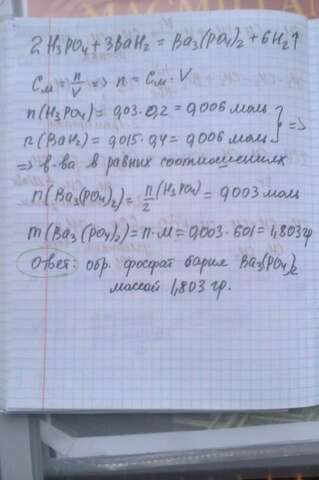 2H₃PO₄ + 3BaH₂ = Ba₃(PO₄)₂ + 6H₂↑
Cм = n/V => n = Cм · V
n(H₃PO₄) = 0,03 · 0,2 = 0,006 моль
n(BaH₂) = 0,015 · 0,4 = 0,006 моль } =>
=> в-ва в равных соотношениях
n(Ba₃(PO₄)₂) = n/2 (H₃PO₄) = 0,003 моль
m(Ba₃(PO₄)₂) = n · M = 0,003 · 601 = 1,803 гр
Ответ: обр. фосфат бария Ba₃(PO₄)₂
массой 1,803 гр.